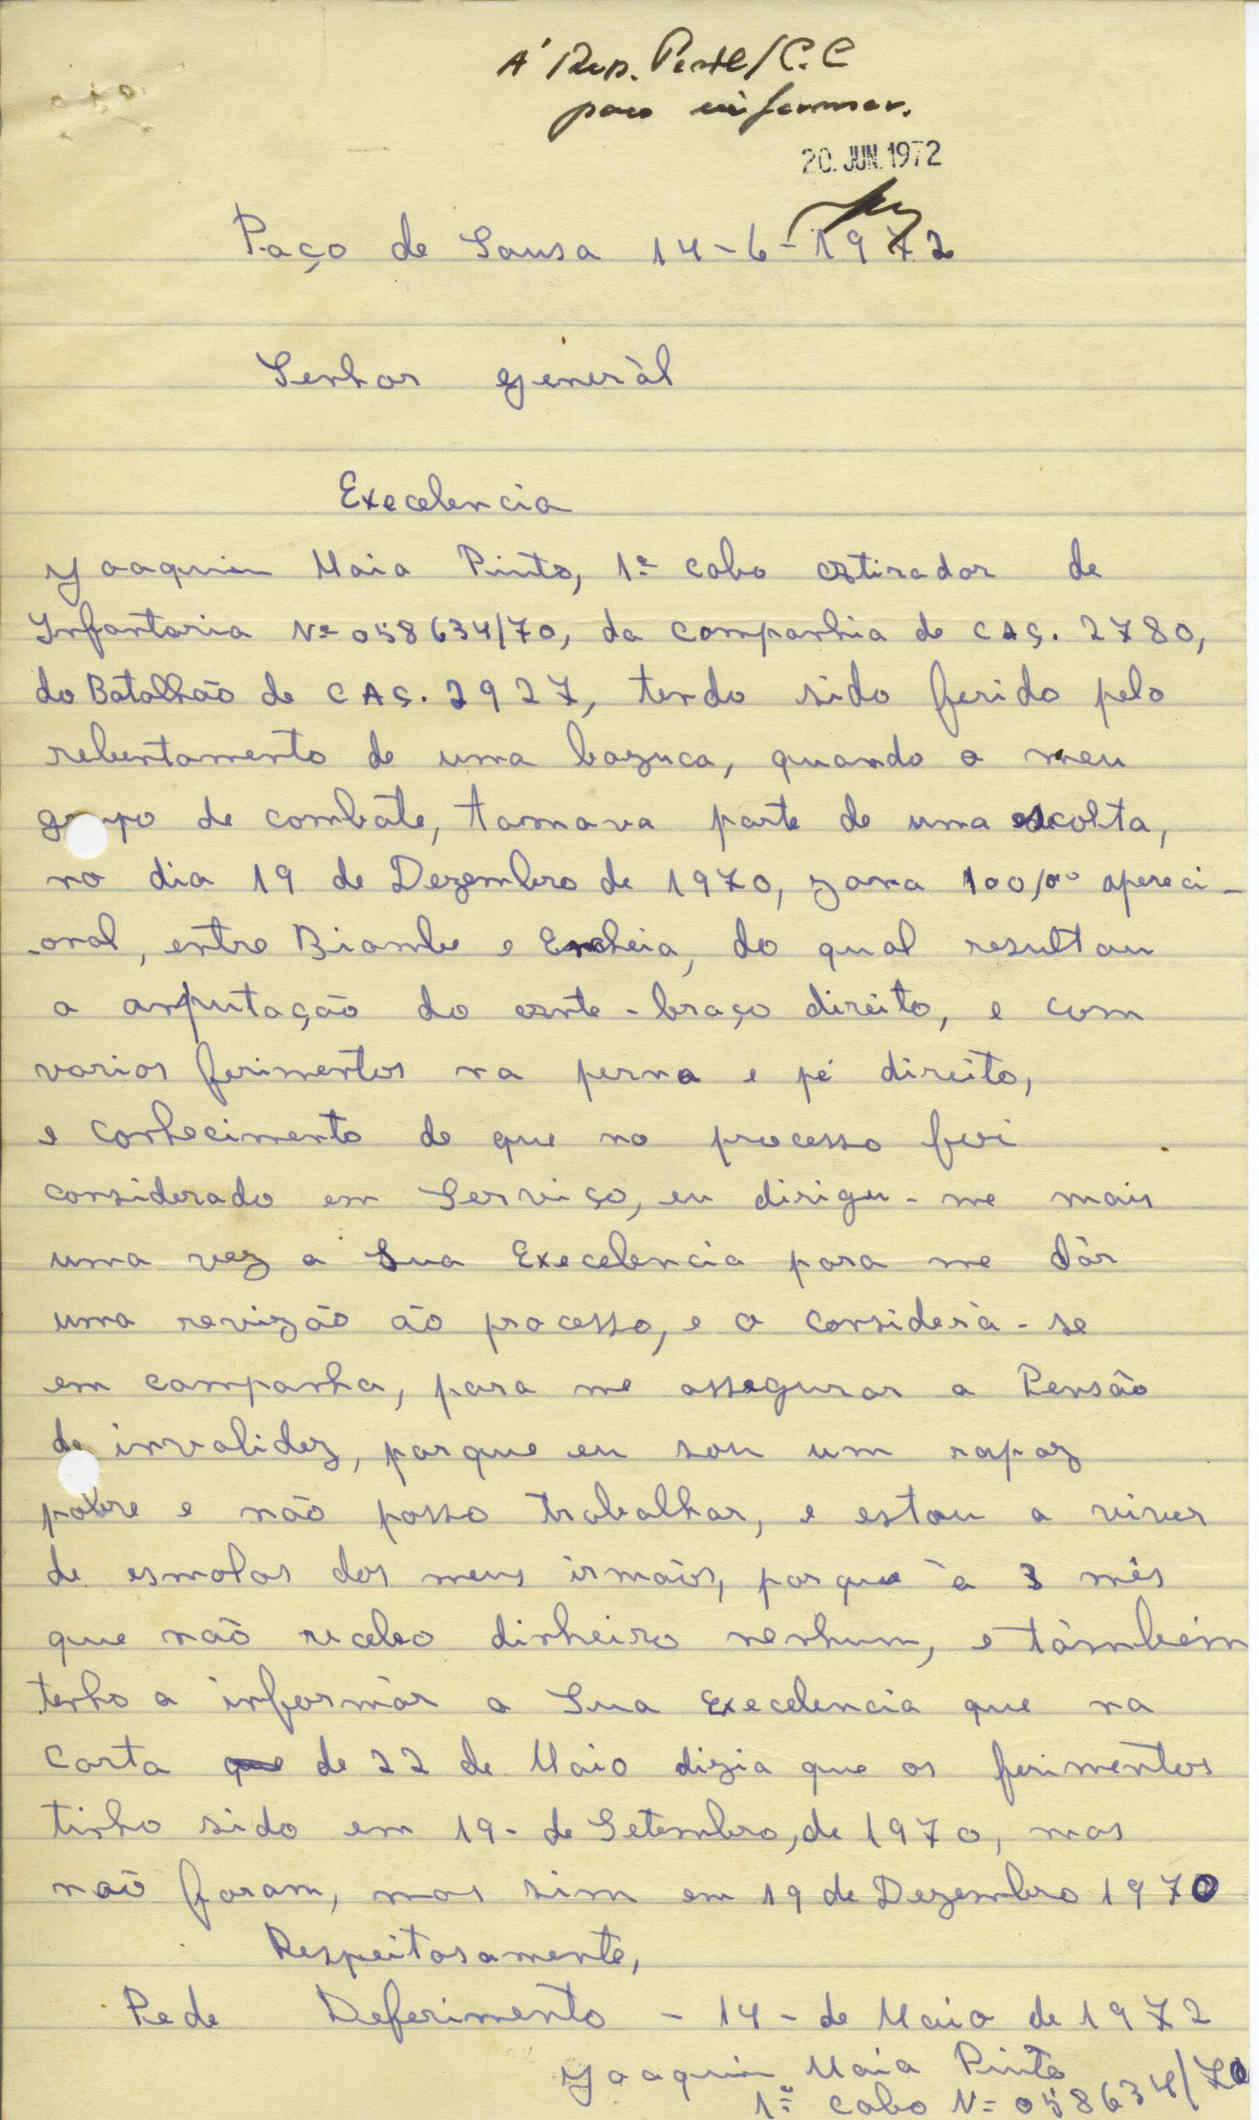 A' Rep. Pess/C.C
para informar.
20. JUN. 1972
Paço de Sousa 14-6-1972
Senhor generàl
Execelencia
Joaquim Maia Pinto, 1º cabo atirador de
Infantaria Nº 058634/70, da companhia de CAÇ. 2780,
do Batalhão de CAÇ. 2927, tendo sido ferido pelo
rebentamento de uma bazuca, quando o meu
grupo de combate, tomava parte de uma escolta,
no dia 19 de Dezembro de 1970, zona 100/00 opereci-
-onal, entre Biambe e Encheia, do qual resultou
a amputação do ante-braço direito, e com
varios ferimentos na perna e pé direito,
e conhecimento de que no processo foi
considerado em Serviço, eu dirigu-me mais
uma vez a Sua Execelencia para me dàr
uma revizão ão processo, e o considerà-se
em campanha, para me assegurar a Pensão
de invalidez, porque eu sou um rapaz
pobre e não posso trabalhar, e estou a viver
de esmolas dos meus irmãos, porque à 3 mês
que não recebo dinheiro nenhum, e tàmbém
tenho a informàr a Sua Execelencia que na
Carta de 22 de Maio dizia que os ferimentos
tinho sido em 19- de Setembro, de 1970, mas
não foram, mas sim em 19 de Dezembro 1970
Respeitosamente,
Pede Deferimento - 14- de Maio de 1972
Joaquim Maia Pinto
1º cabo Nº 058634/70